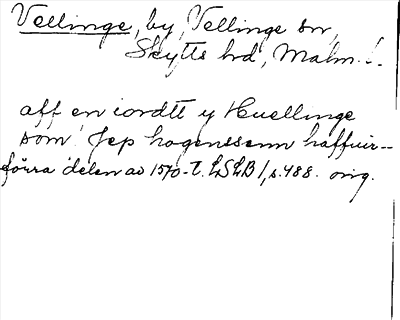 Vellinge, by, Vellinge sn,
Skytts hd, Malm. l.
aff en iordtt y Huellinge
som Jep hogenssenn haffuir--
förra delen av 1570-t. LSLB 1, s. 488. orig.